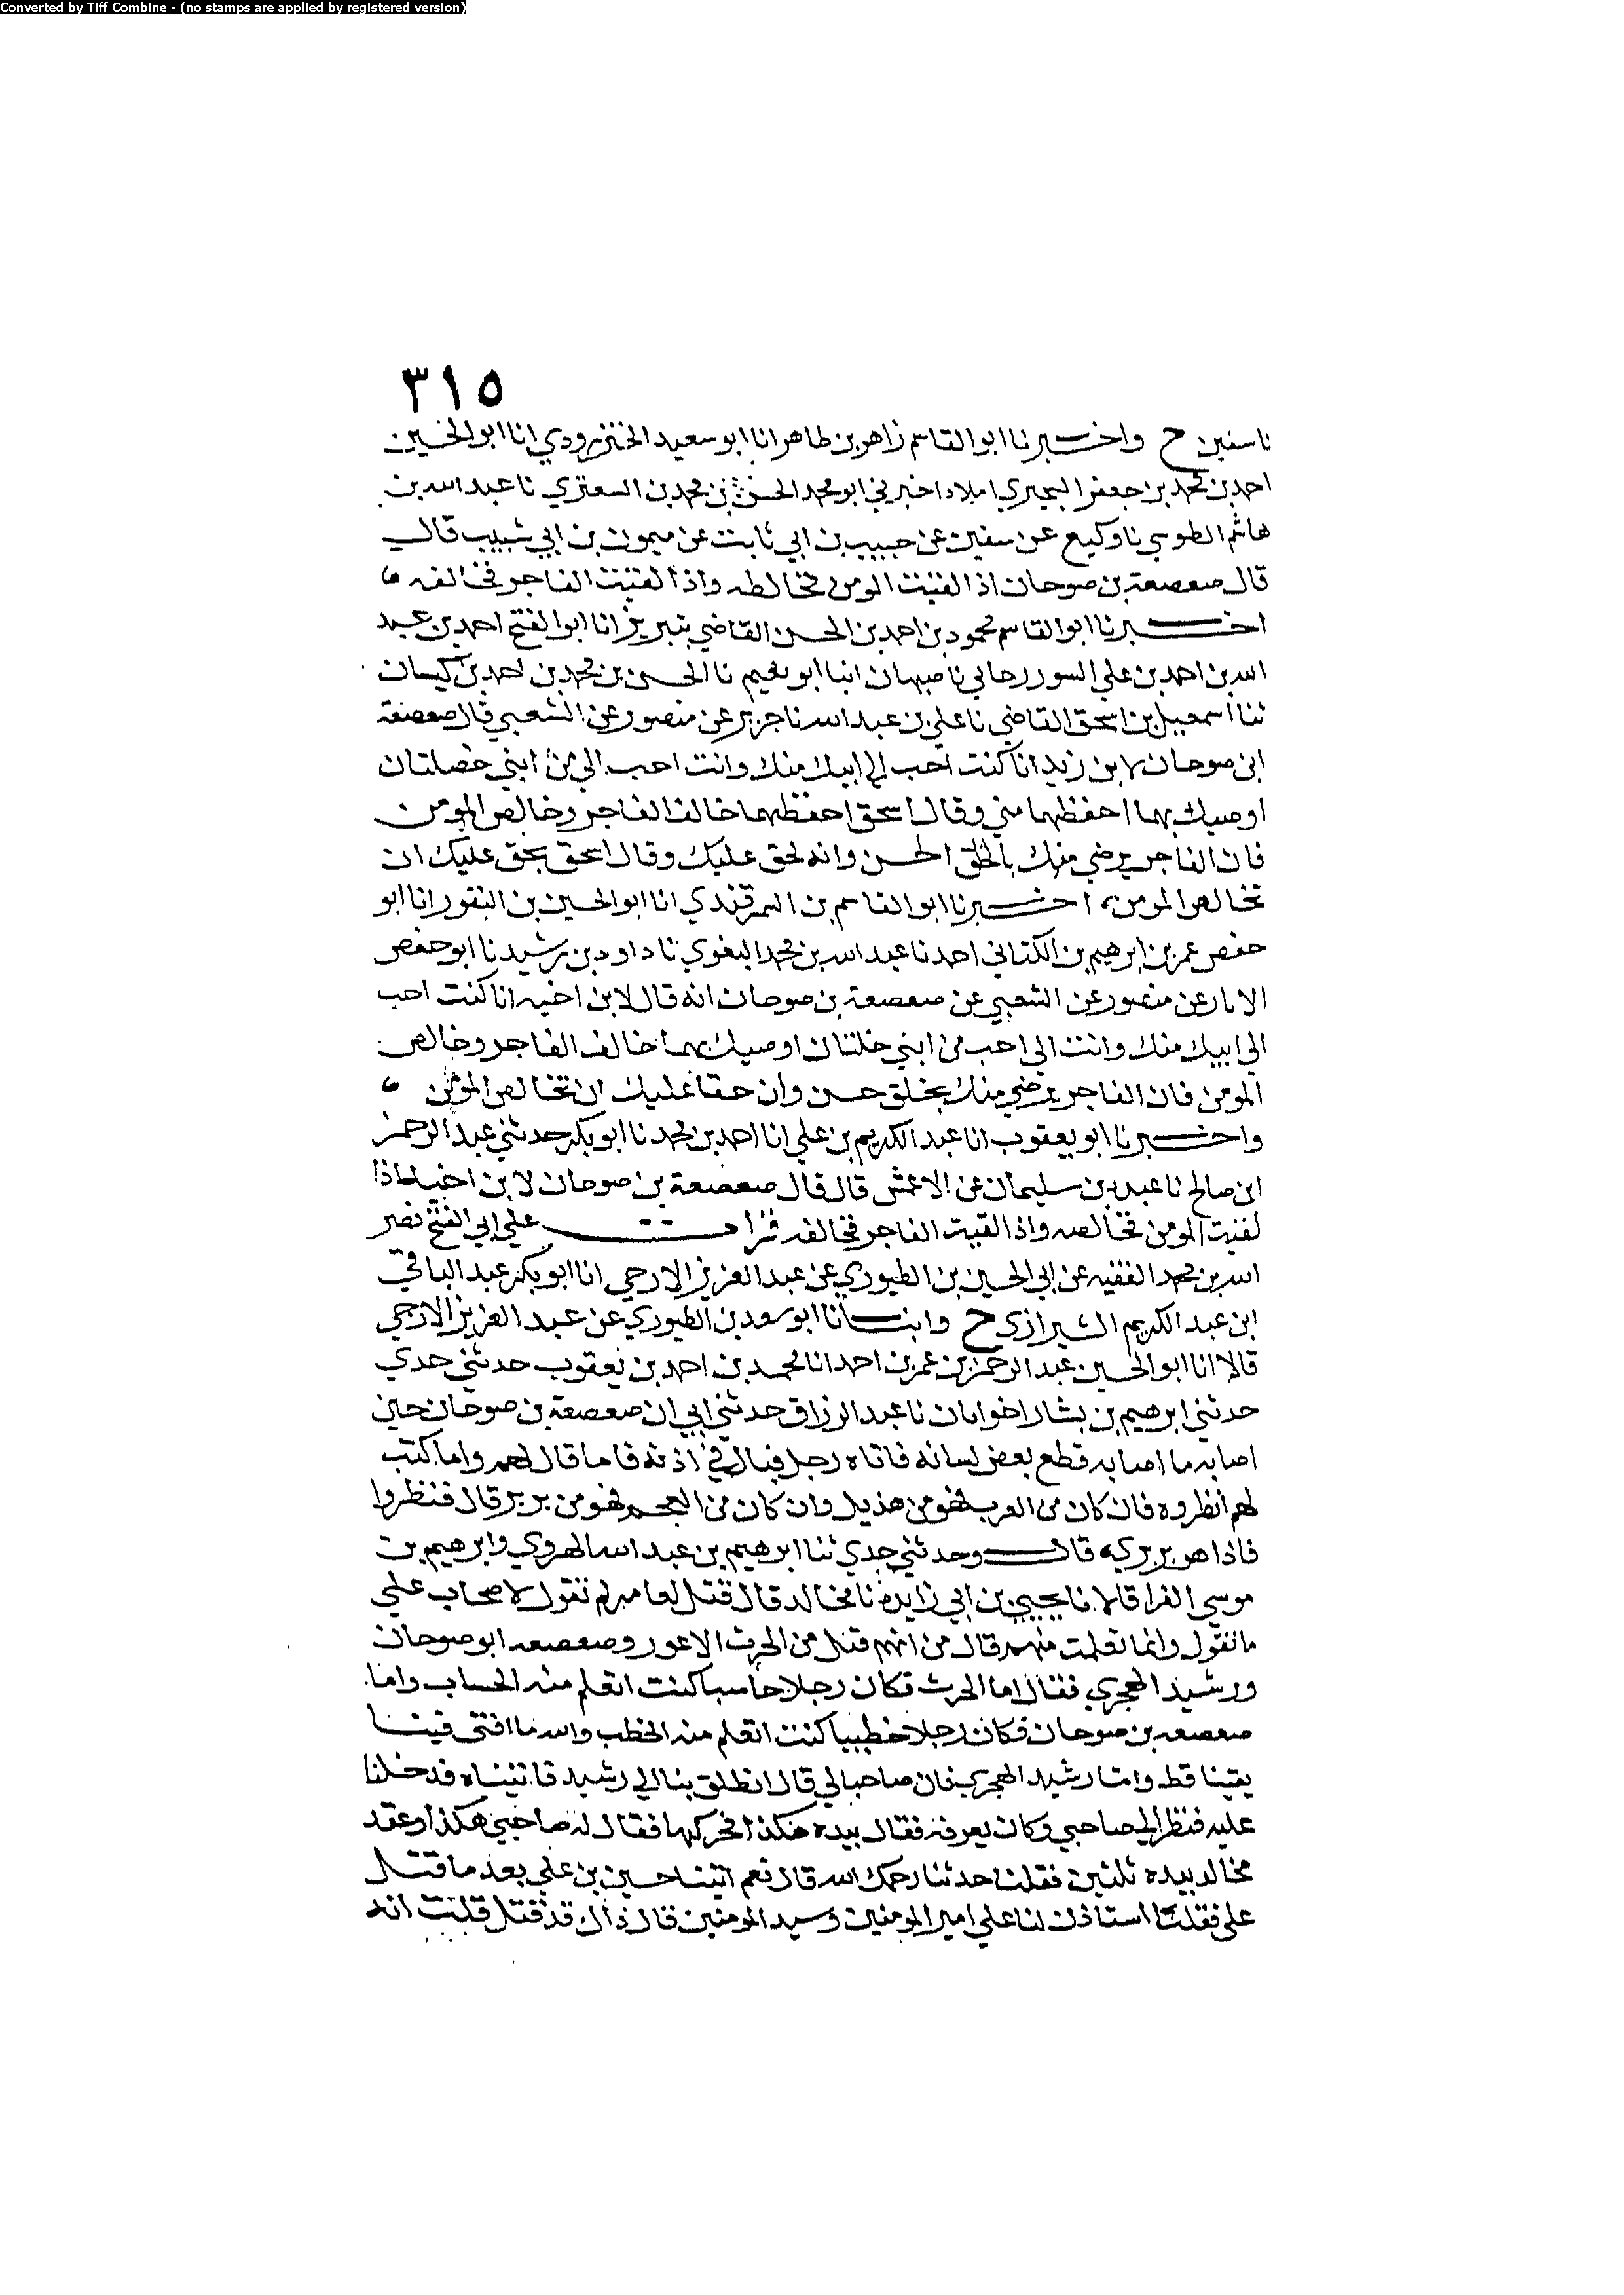 Converted by Tiff Combine - (no stamps are applied by registered version)
٣١٥
ناسفين ح واخبرنا ابو القاسم زاهر بن طاهر انا ابو سعيد الخنزرودي انا ابو الحسين
احمد بن محمد بن جعفر البحيري املاء اخبرني ابو محمد الحسن بن محمد بن السعتري نا عبد الله بن
هاشم الطوسي نا وكيع عن سفين عن حبيب بن ابي ثابت عن ميمون بن ابي شبيب قال
قال صعصعة بن صوحان اذا لقيت المومن فخالطه واذا لقيت الفاجر فخالفه
اخبرنا ابو القاسم محمود بن احمد بن الحسن القاضي بتبريز انا ابو الفتح احمد بن عبد
الله بن احمد بن علي السوررجاني باصبهان انبا ابو نعيم نا الحسن بن محمد بن احمد بن كيسان
ثنا اسمعيل بن اسحق القاضي نا علي بن عبد الله نا جرير عن منصور عن الشعبي قال صعصعة
ابن صوحان لابن زيد انا كنت احب الى ابيك منك وانت احب الي من ابني خصلتان
اوصيك بهما احفظهما مني وقال اسحق احفظهما خالف الفاجر وخالص المومن
فان الفاجر يرضي منك بالخلق الحسن وانه لحق عليك وقال اسحق بحق عليك ان
تخالص المومن، اخبرنا ابو القاسم بن السمرقندي انا ابو الحسين بن النقور انا ابو
حفص عمر بن ابرهيم بن الكتاني احمد نا عبد الله بن محمد البغوي نا داود بن رشيد نا ابو حفص
الابار عن منصور عن الشعبي عن صعصعة بن صوحان انه قال لابن اخيه انا كنت احب
الى ابيك منك وانت الى احب من ابني خلتان اوصيك بهما خالف الفاجر وخالص
المومن فان الفاجر يرضي منك بخلق حسن وان حقا عليك ان تخالص المومن
واخبرنا ابو يعقوب انا عبد الكريم بن علي انا احمد بن محمد نا ابو بكر حدثني عبد الرحمن
ابن صالح نا عبد بن سليمان عن الاعمش قال قال صعصعة بن صوحان لابن اخيه اذا
لقيت المومن فخالصه واذا لقيت الفاجر فخالفه قرات علي ابي الفتح نصر
الله بن محمد الفقيه عن ابي الحسين بن الطيوري عن عبد العزيز الارجي انا ابو بكر عبد الباقي
ابن عبد الكريم الشيرازي ح وانبسانا ابو سعد بن الطيوري عن عبد العزيز الازجي
قالا انا ابو الحسين عبد الرحمن بن عمر بن احمد انا محمد بن احمد بن يعقوب حدثني جدي
حدثني ابرهيم بن بشار اخو ابان نا عبد الرزاق حدثني ابي ان صعصعة بن صوحان حين
اصابه ما اصابه قطع بعض لسانه فاتاه رجل فبال في اذنه فاما قال لهم واما كتب
لهم انظروه فان كان من العرب فهو من هذيل وان كان من العجم فهو من بربر قال فنظروا
فاذا هو بربري قال وحدثني جدي ثنا ابرهيم بن عبد الله الهروي وابرهيم بن
موسي الفرا قالا نا يحيي بن ابي زايدة نا مخالد قال قيل لعامر لم تقول لاصحاب علي
ما تقول وانما تعلمت منهم قال من ايهم قيل من الحرث الاعور وصعصعه ابو صوحان
ورشيد الهجري فقال اما الحرث فكان رجلا حاسبا كنت اتعلم منه الحساب واما
صعصعه بن صوحان فكان رجلا خطيبا كنت اتعلم منه الخطب والله ما افتى فينا
يقينا قط واما رشيد الهجري فان صاحبا لي قال انطلق بنا الي رشيد فاتيناه فدخلنا
عليه فنظر الي صاحبي وكان يعرفه فقال بيده هكذا فحركها فقال له صاحبي هكذا وعقد
مخالد بيده ثلثين فقلنا حدثنا رحمك الله قال نعم اتينا حسين بن علي بعد ما قتل
علي فقلنا استاذن لنا علي امير المومنين وسيد المومنين قال ذاك قد قتل قلت انه